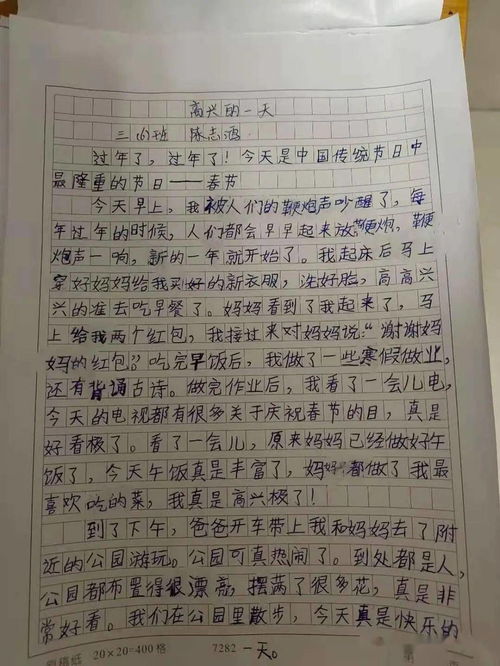 高兴的一天
三(6)班 陈志鸿
过年了，过年了！今天是中国传统节日中
最隆重的节日——春节
今天早上，我被人们的鞭炮声吵醒了，每
年过年的时候，人们都会早早起来放鞭炮，鞭
炮声一响，新的一年就开始了。我起床后马上
穿好妈妈给我买好的新衣服，洗好脸，高高兴
兴的准去吃早餐了。妈妈看到了我起来了，马
上给我两个红包，我接过来对妈妈说：“谢谢妈
妈的红包”吃完早饭后，我做了一些寒假做业，
还有背诵古诗。做完作业后，我看了一会儿电，
今天的电视都有很多关于庆祝春节的目，真是
好看极了。看了一会儿，原来妈妈已经做好午
饭了，今天午饭真是丰富了，妈妈都做了我最
喜欢吃的菜，我真是高兴极了！
到了下午，爸爸开车带上我和妈妈去了附
近的公园游玩。公园可真热闹了。到处都是人，
公园都布置得很漂亮，摆满了很多花，真是非
常好看。我们在公园里散步，今天真是快乐的
原稿纸 20×20=400格 7282 一天。 第